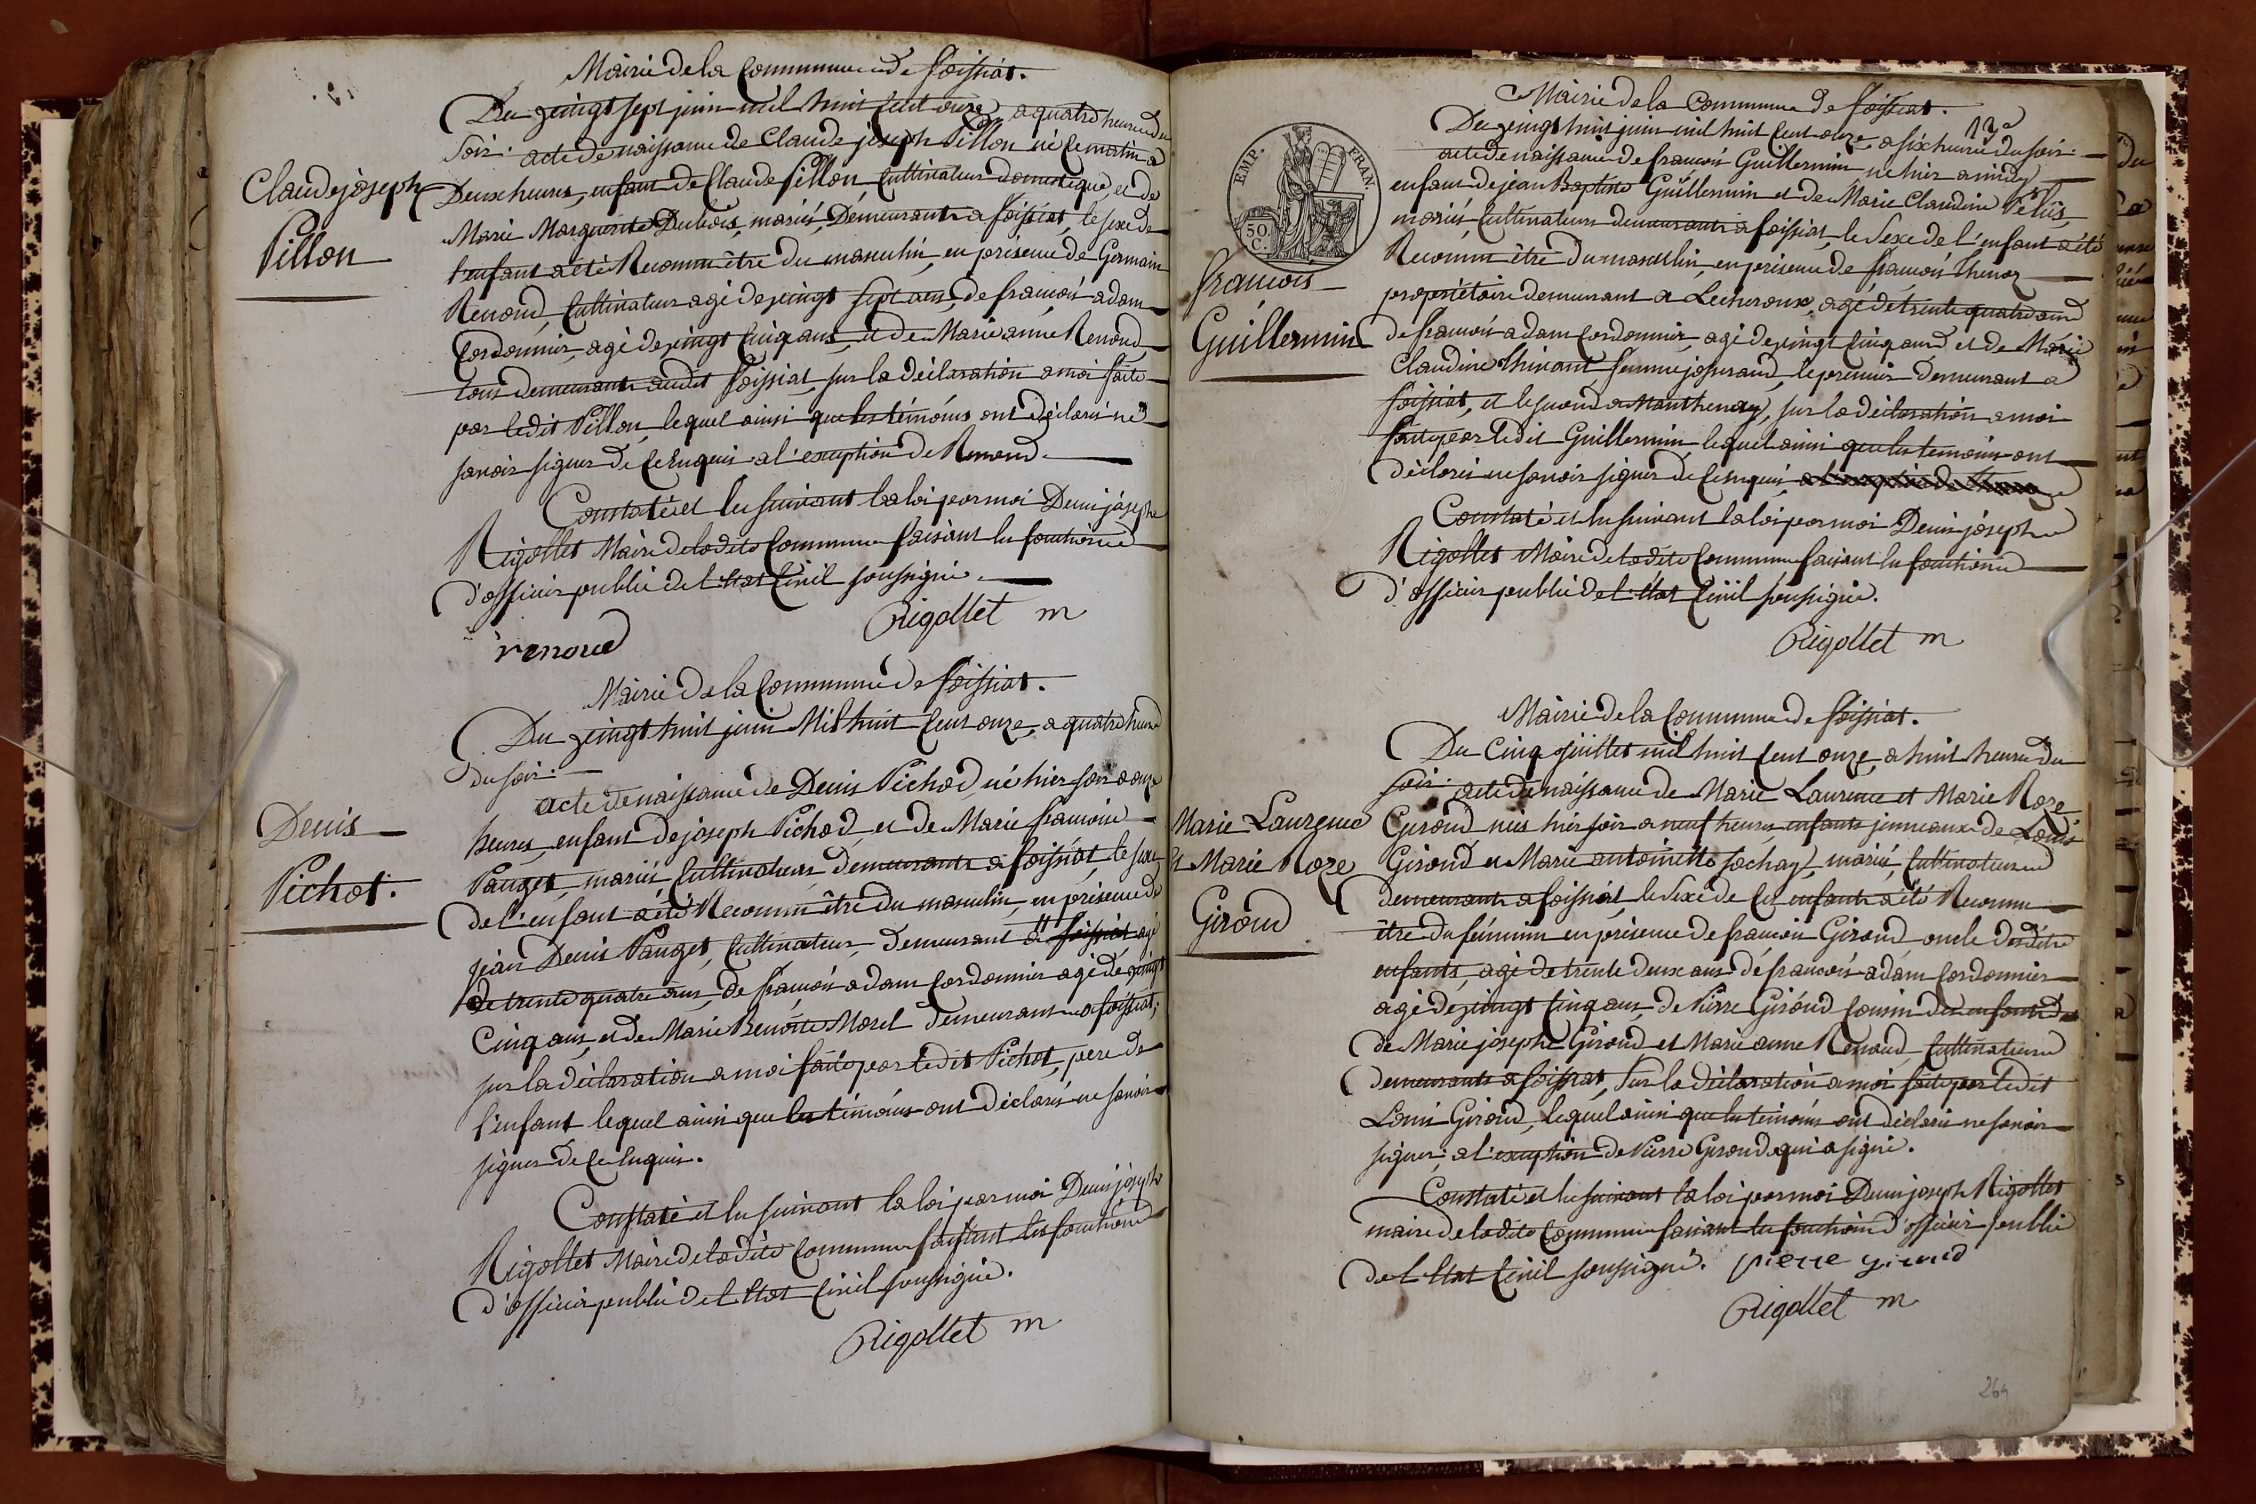 Mairie de la Commune de foissiat.
Du vingt sept juin mil huit cent onze, a quatre heures du
soir. acte de naissance de Claude joseph Pillon né ce matin a
Claude joseph
Pillon
Deux heures, enfant de Claude Pillon Cultivateur domestique et de
Marie Marguerite Dubois, mariés, Demeurants a foissiat, le sexe de
l'enfant a été Reconnu être du masculin, en présence de Germain
Renoud, Cultivateur agé de vingt sept ans, de francois adam
Cordonnier, agé de vingt Cinq ans, et de Marie anne Renoud,
tous demeurants audit foissiat, sur la déclaration a moi faite
par ledit Pillon, lequel ainsi que les témoins ont déclaré ne
savoir signer de ce Enquis a l'exception de Renoud.
Constaté et lu suivant la loi par moi Denis joseph
Rigollet Maire de ladite Commune faisant les fonctions
d'officier public de l'Etat Civil soussigné.
renoud
Rigollet m
Mairie de la Commune de foissiat.
Du vingt huit juin Mil huit Cent onze, a quatre heures
du soir.
acte de naissance de Denis Pichod, né hier soir a onze
Denis
Pichot.
heures, enfant de joseph Pichod, et de Marie francoise
Pauget, mariés, Cultivateurs, demeurants a foissiat, le sexe
de l'enfant a été Reconnu être du masculin, en présence de
jean Denis Pauget, Cultivateur, Demeurant a foissiat agé
de trente quatre ans, de francois adam Cordonnier agé de vingt
Cinq ans, et de Marie Benoite Morel demeurant a foissiat,
sur la déclaration a moi faite par ledit Pichot, pere de
l'enfant lequel ainsi que les témoins ont déclarés ne savoir
signer de ce Enquis.
Constaté et lu suivant la loi par moi Denis joseph
Rigollet Maire de ladite Commune faisant les fonctions
d'officier public de l'Etat Civil soussigné.
Rigollet m
EMP. FRAN.
50
C.
Mairie de la Commune de foissiat.
13e
Du vingt huit juin mil huit Cent onze a six heures du soir.
acte de naissance de francois Guillermin né hier a midy
enfant de jean Baptiste Guillermin et de Marie Claudine
mariés, Cultivateurs demeurants a foissiat, le Sexe de l'enfant a été
Reconnu être du masculin, en présence de francois Thenoz
francois
Guillermin
propriétaire demeurant a Lecheroux, agé de trente quatre ans
de francois adam Cordonnier, agé de vingt Cinq ans et de Marie
Claudine Thivant femme josserand, le premier Demeurant a
foissiat, et le second a Manthenay, sur la déclaration a moi
faite par ledit Guillermin, lequel ainsi que les témoins ont
déclarés ne savoir signer de ce Enquis
Constaté et lu suivant la loi par moi Denis joseph
Rigollet Maire de ladite Commune faisant les fonctions
d'officier public de l'Etat Civil soussigné.
Rigollet m
Mairie de la Commune de foissiat.
Du Cinq juillet mil huit Cent onze, a huit heures du
soir. acte de naissance de Marie Laurence et Marie Roze
Marie Laurence
et Marie Roze
Giroud
Giroud nés hier soir a neuf heures, enfants jumeaux de Louis
Giroud et Marie antoinette sochay, mariés, Cultivateurs
demeurants a foissiat, le Sexe de ces enfants a été Reconnu
être du féminin en présence de francois Giroud oncle desdits
enfants, agé de trente deux ans, de francois adam Cordonnier
agé de vingt Cinq ans, de Pierre Giroud Cousin des enfants
de Marie josephe Giroud et Marie anne Renoud, Cultivateurs
demeurants a foissiat, Sur la déclaration a moi faite par ledit
Louis Giroud, lequel ainsi que les témoins ont déclarés ne savoir
signer, a l'exception de Pierre Giroud qui a signé.
Constaté et lu suivant la loi par moi Denis joseph Rigollet
maire de ladite Commune faisant les fonctions d'officier public
de l'Etat Civil soussigné. pierre giroud
Rigollet m
264